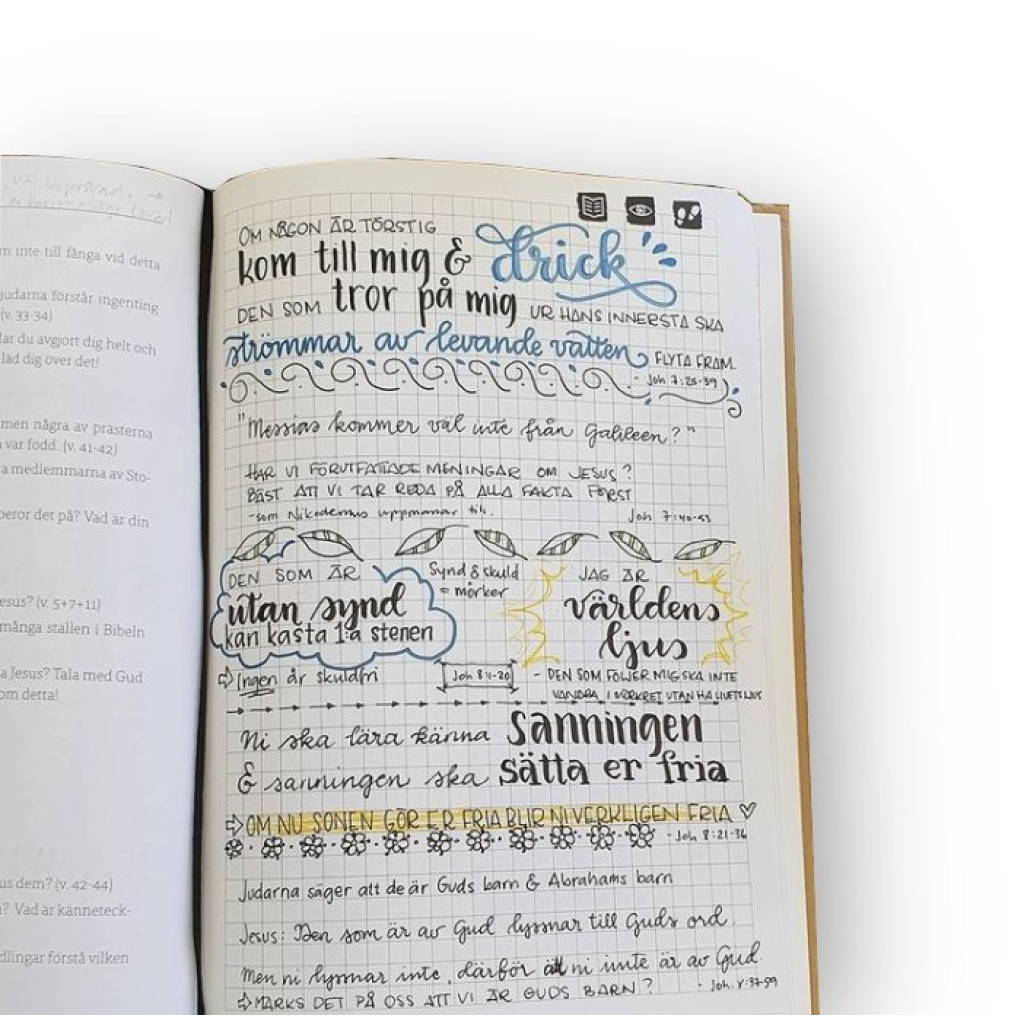 m inte till fånga vid detta
judarna förstår ingenting
(v. 33-34)
ar du avgjort dig helt och
lad dig över det!
men några av prästerna
var född. (v. 41-42)
a medlemmarna av Sto-
beror det på? Vad är din
esus? (v. 5+7+11)
många ställen i Bibeln
a Jesus? Tala med Gud
om detta!
us dem? (v. 42-44)
? Vad är känneteck-
dlingar förstå vilken
OM NÅGON ÄR TÖRSTIG
kom till mig & drick
DEN SOM tror på mig UR HANS INNERSTA SKA
strömmar av levande vatten FLYTA FRAM.
- Joh 7:25-39
"Messias kommer väl inte från Galileen?"
HAR VI FÖRUTFATTADE MENINGAR OM JESUS?
BÄST ATT VI TAR REDA PÅ ALLA FAKTA FÖRST
-som Nikodemus uppmanar till.
Joh 7:40-53
DEN SOM ÄR
utan synd
kan kasta 1:a stenen
⇨ Ingen är skuldfri
Synd & skuld
= mörker
Joh 8:1-20
JAG ÄR
världens
ljus
- DEN SOM FÖLJER MIG SKA INTE
VANDRA I MÖRKRET UTAN HA LIVETS LJUS
Ni ska lära känna sanningen
& sanningen ska sätta er fria
⇨ OM NU SONEN GÖR ER FRIA BLIR NI VERKLIGEN FRIA ♡
- Joh 8:21-36
Judarna säger att de är Guds barn & Abrahams barn
Jesus: Den som är av Gud lyssnar till Guds ord.
Men ni lyssnar inte, därför att ni inte är av Gud
⇨ MÄRKS DET PÅ OSS ATT VI ÄR GUDS BARN?
- Joh. 8:37-59